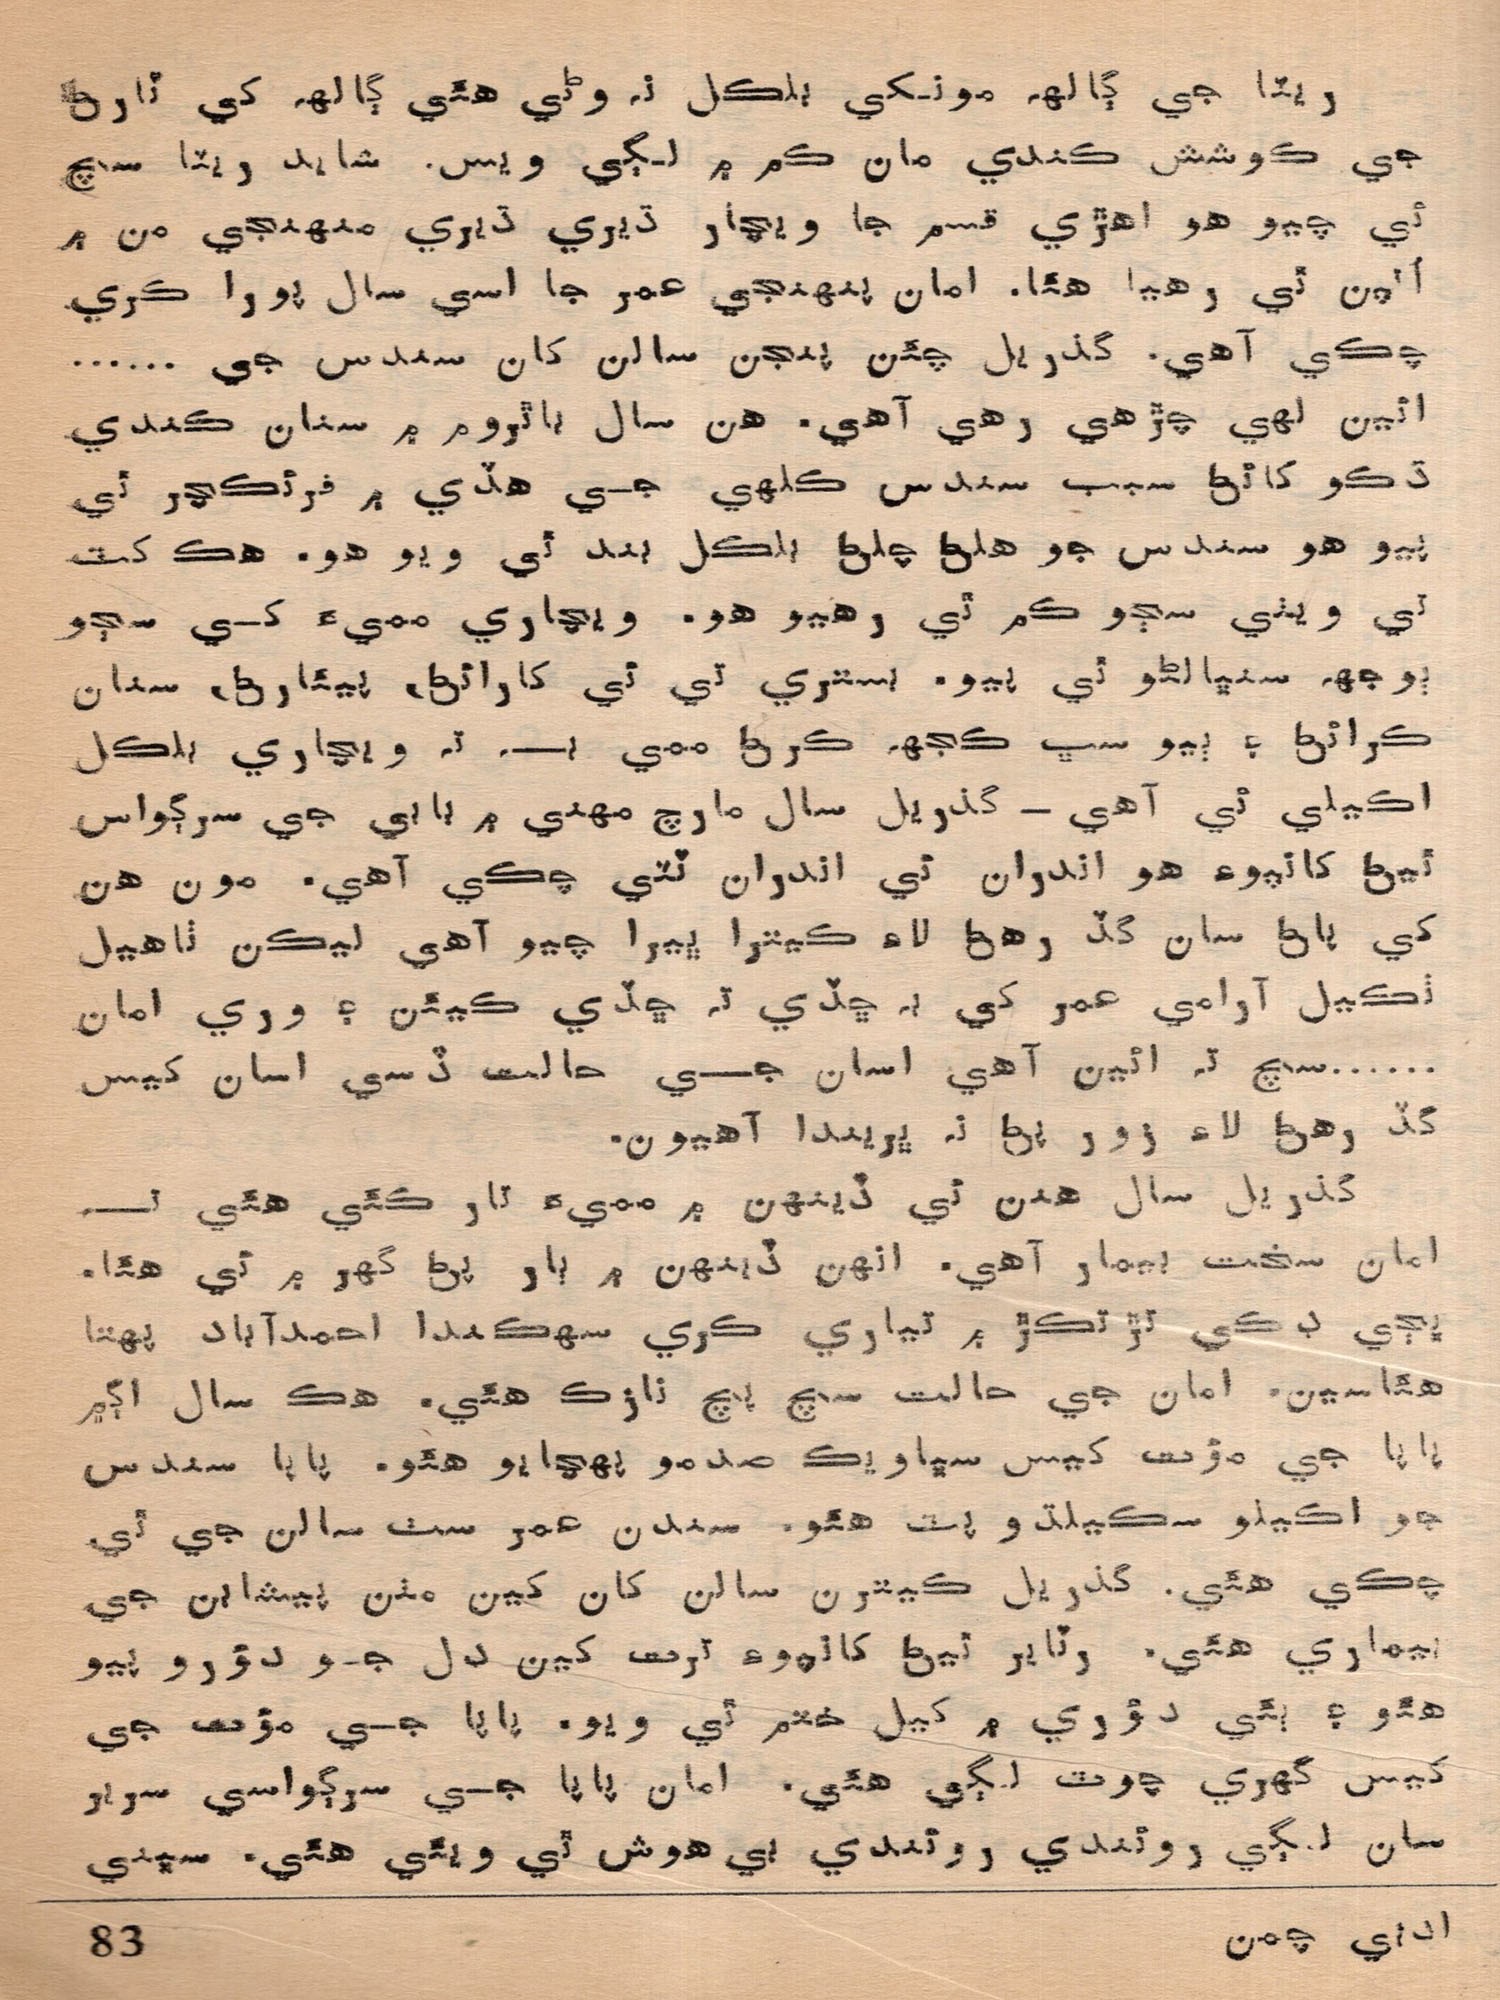 ريٽا جي ڳالهہ مونکي بلڪل نہ وڻي هئي ڳالهہ کي ٽارڻ
جي ڪوشش ڪندي مان ڪم ۾ لڳي ويس. شايد ريٽا سچ
ئي چيو هو اهڙي قسم جا ويچار ڌيري ڌيري منهنجي من ۾
اُٿين ئي رهيا هئا. امان پنهنجي عمر جا اسي سال پورا ڪري
چڪي آهي. گذريل چئن پنجن سالن کان سندس جي ......
ائين لهي چڙهي رهي آهي. هن سال باٿروم ۾ سنان ڪندي
ڌڪو کائڻ سبب سندس ڪلهي جي هڏي ۾ فرئڪچر ٿي
پيو هو سندس جو هلڻ چلڻ بلڪل بند ٿي ويو هو. هڪ کٽ
تي ويٺي سڄو ڪم ٿي رهيو هو. ويچاري مميءَ کي سڄو
ٻوجهہ سنڀالڻو ٿي پيو. بستري تي ئي کارائڻ، پيئارڻ، سنان
ڪرائڻ ۽ ٻيو سڀ ڪجهہ ڪرڻ ممي بہ تہ ويچاري بلڪل
اڪيلي ئي آهي – گذريل سال مارچ مهني ۾ بابي جي سرڳواس
ٿيڻ کانپوءِ هو اندران ئي اندران ٽٽي چڪي آهي. مون هن
کي پاڻ سان گڏ رهڻ لاءِ ڪيترا ڀيرا چيو آهي ليڪن ٺاهيل
ٺڪيل آرامي عمر کي بہ ڇڏي تہ ڇڏي ڪيئن ۽ وري امان
......سچ تہ ائين آهي اسان جي حالت ڏسي اسان کيس
گڏ رهڻ لاءِ زور پڻ نہ ڀريندا آهيون.
گذريل سال هنن ئي ڏينهن ۾ مميءَ تار ڪئي هئي تہ
امان سخت بيمار آهي. انهن ڏينهن ۾ ٻار پڻ گهر ۾ ئي هئا.
ڀڄي ڊڪي تڙتڪڙ ۾ تياري ڪري سهڪندا احمدآباد پهتا
هئاسين. امان جي حالت سچ پچ نازڪ هئي. هڪ سال اڳ۾
پاپا جي مؤت کيس سڀاويڪ صدمو پهچايو هئو. پاپا سندس
جو اڪيلو سڪيلڌو پٽ هئو. سندن عمر سٺ سالن جي ئي
چڪي هئي. گذريل ڪيترن سالن کان کين مٺن پيشابن جي
بيماري هئي. رٽاير ٿيڻ کانپوءِ ترت کين دل جو دؤرو پيو
هئو ۽ ٻئي دؤري ۾ کيل ختم ٿي ويو. پاپا جي مؤت جي
کيس گهري چوٽ لڳي هئي. امان پاپا جي سرڳواسي سرير
سان لڳي روئندي روئندي بي هوش ٿي ويئي هئي. سڀني
ادبي چمن
83